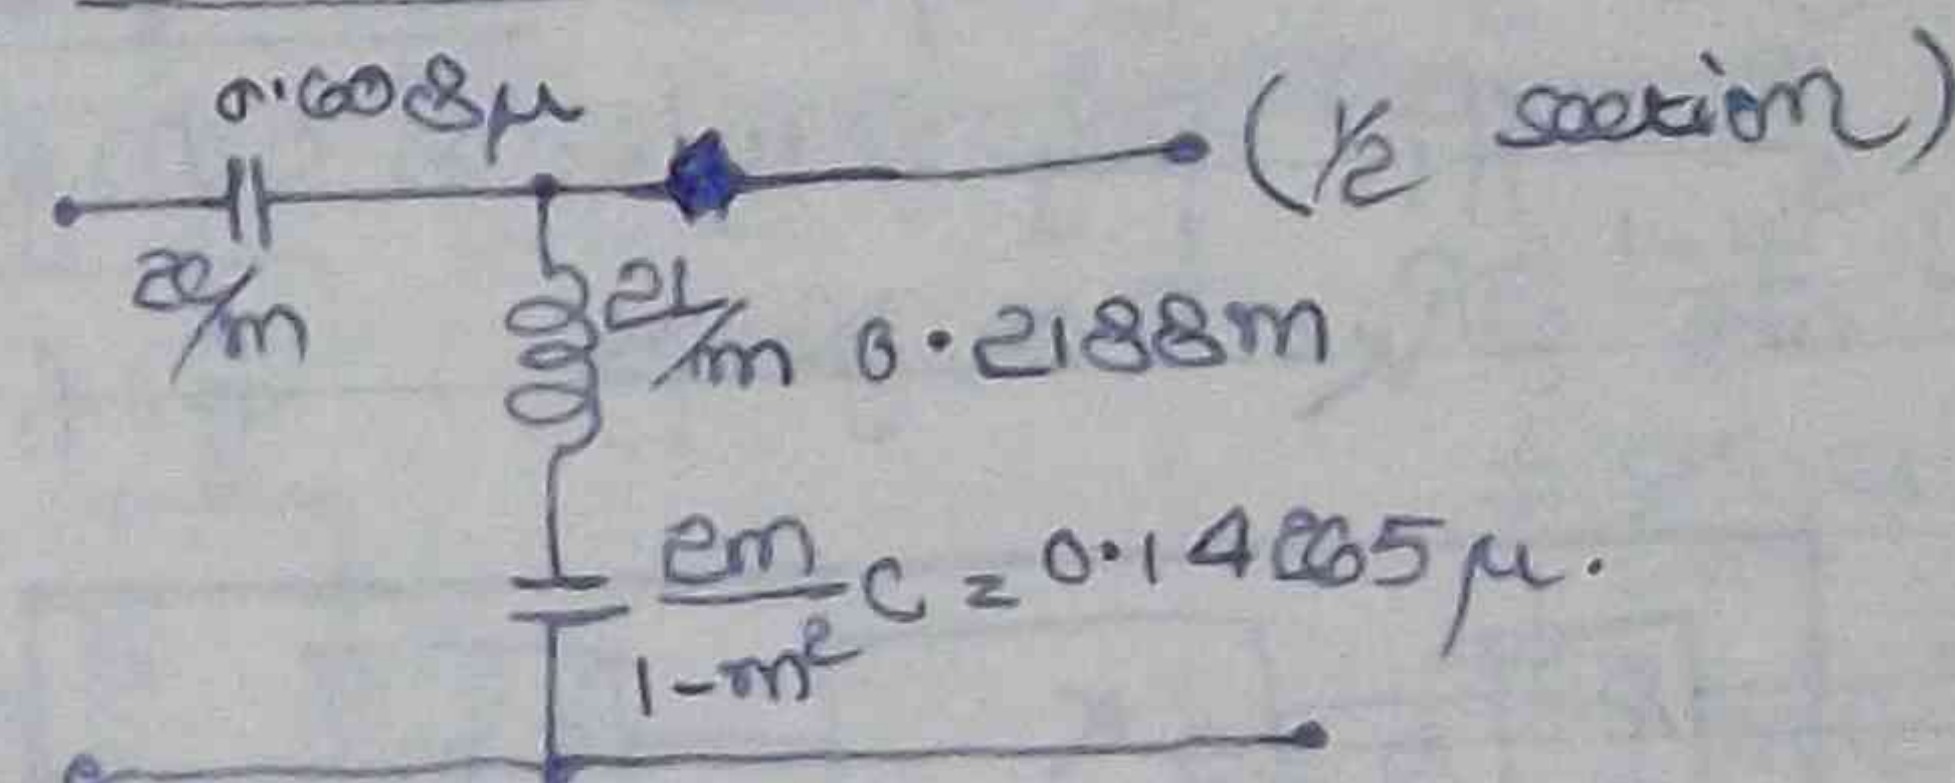 0.608μ
(1/2 section)
2C/m
2L/m 0.2188m
2m/1-m² C = 0.14265μ.